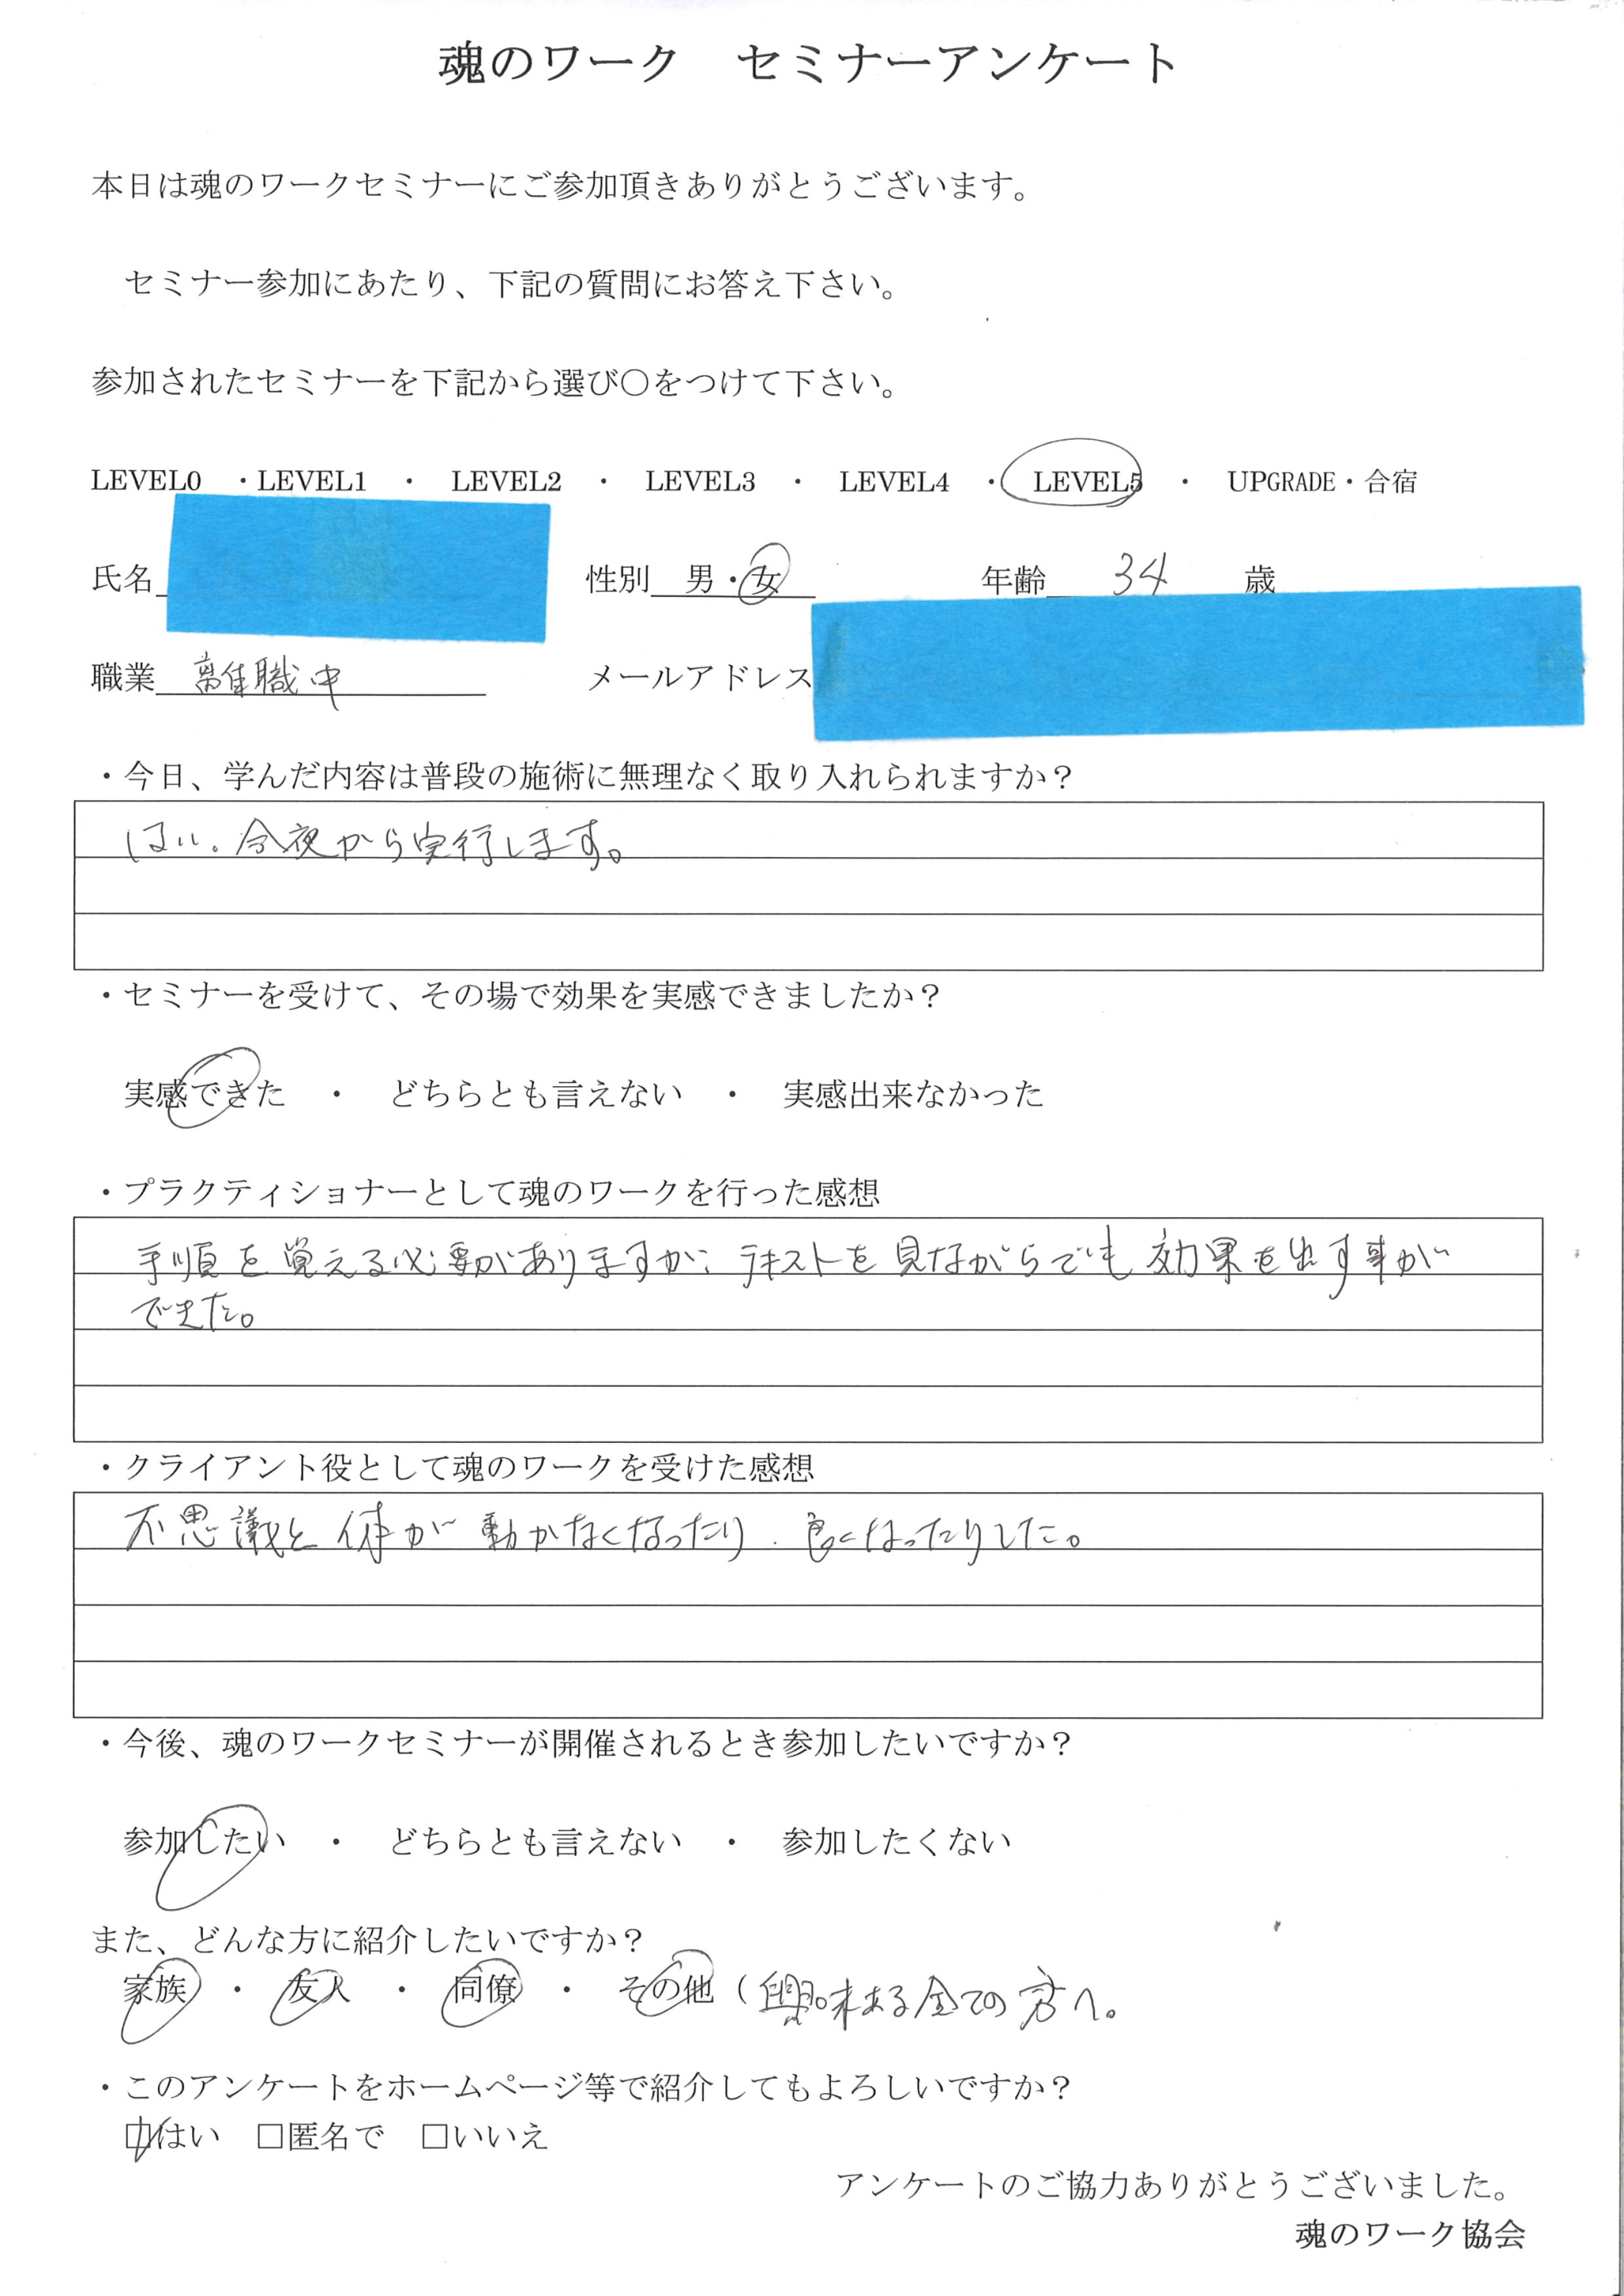 魂のワーク　セミナーアンケート
本日は魂のワークセミナーにご参加頂きありがとうございます。
セミナー参加にあたり、下記の質問にお答え下さい。
参加されたセミナーを下記から選び〇をつけて下さい。
LEVEL0　・LEVEL1　・　LEVEL2　・　LEVEL3　・　LEVEL4　・　LEVEL5　・　UPGRADE・合宿
氏名　性別　男・女　年齢　34　歳
職業　離職中　メールアドレス
・今日、学んだ内容は普段の施術に無理なく取り入れられますか？
はい。今夜から実行します。
・セミナーを受けて、その場で効果を実感できましたか？
実感できた　・　どちらとも言えない　・　実感出来なかった
・プラクティショナーとして魂のワークを行った感想
手順を覚える必要がありますが、テキストを見ながらでも効果を出す事が
できた。
・クライアント役として魂のワークを受けた感想
不思議と体が動かなくなったり、良くなったりした。
・今後、魂のワークセミナーが開催されるとき参加したいですか？
参加したい　・　どちらとも言えない　・　参加したくない
また、どんな方に紹介したいですか？
家族　・　友人　・　同僚　・　その他（興味ある全ての方へ。
・このアンケートをホームページ等で紹介してもよろしいですか？
□はい　□匿名で　□いいえ
アンケートのご協力ありがとうございました。
魂のワーク協会